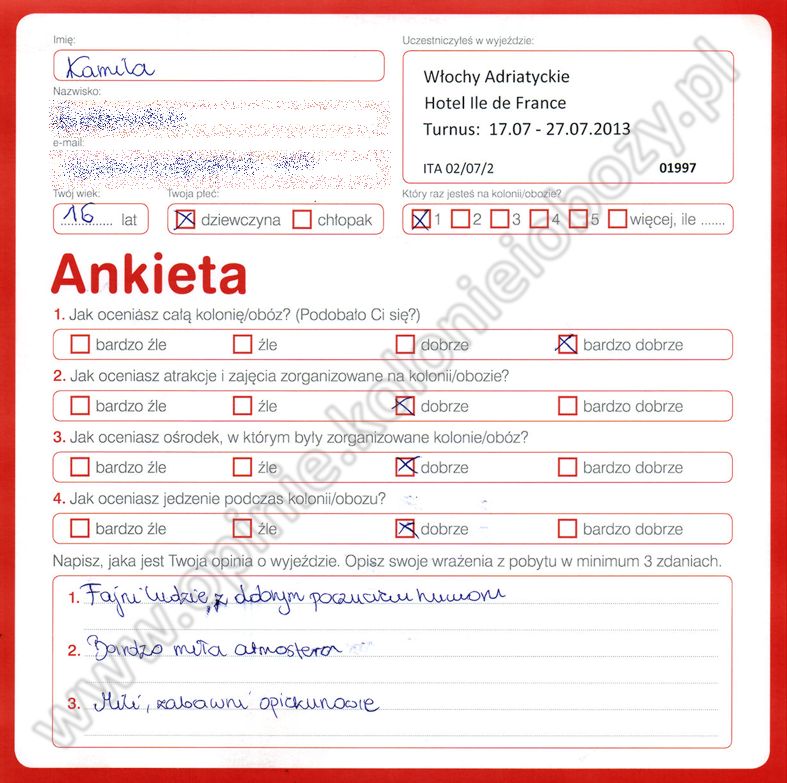 Imię:
Kamila
Nazwisko:
e-mail:
Twój wiek:
16 lat
Twoja płeć:
dziewczyna chłopak
Uczestniczyłeś w wyjeździe:
Włochy Adriatyckie
Hotel Ile de France
Turnus: 17.07 - 27.07.2013
ITA 02/07/2 01997
Który raz jesteś na kolonii/obozie?
1 2 3 4 5 więcej, ile .......
Ankieta
1. Jak oceniasz całą kolonię/obóz? (Podobało Ci się?)
bardzo źle źle dobrze bardzo dobrze
2. Jak oceniasz atrakcje i zajęcia zorganizowane na kolonii/obozie?
bardzo źle źle dobrze bardzo dobrze
3. Jak oceniasz ośrodek, w którym były zorganizowane kolonie/obóz?
bardzo źle źle dobrze bardzo dobrze
4. Jak oceniasz jedzenie podczas kolonii/obozu?
bardzo źle źle dobrze bardzo dobrze
Napisz, jaka jest Twoja opinia o wyjeździe. Opisz swoje wrażenia z pobytu w minimum 3 zdaniach.
1. Fajni ludzie, z dobrym poczuciem humoru
2. Bardzo miła atmosfera
3. Mili, zabawni opiekunowie
www.opinie.kolonieiobozy.pl